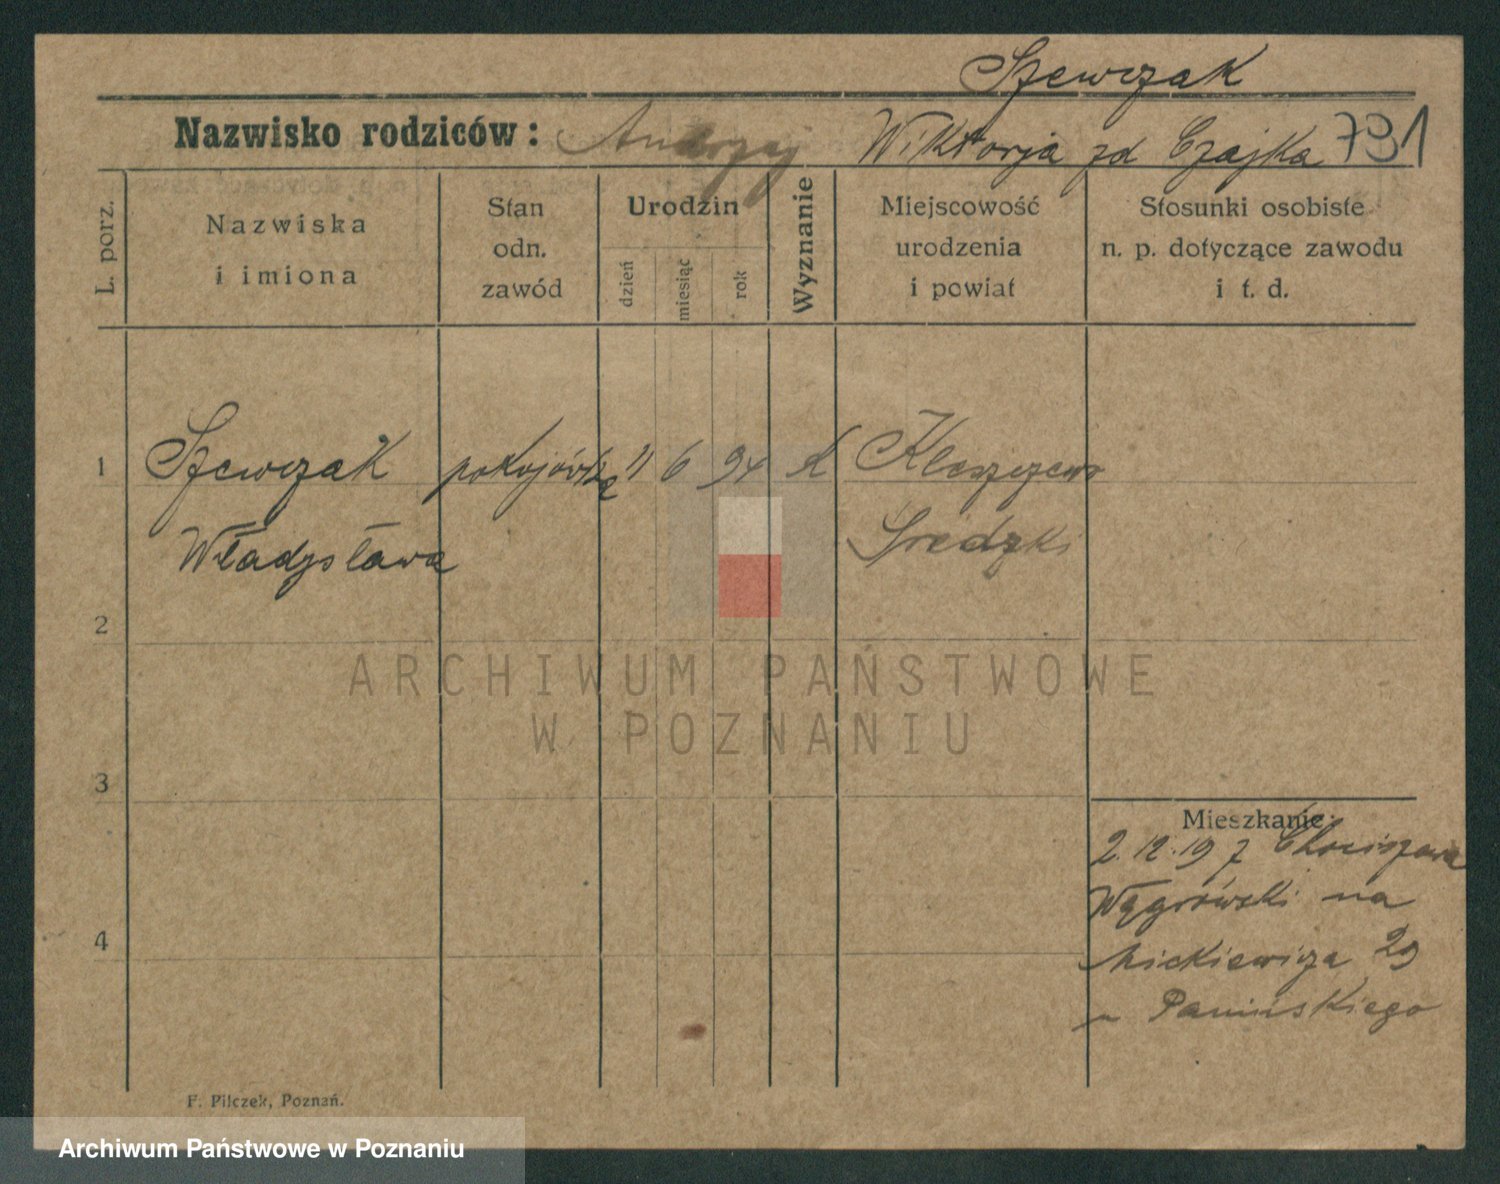 Szewczak
Nazwisko rodziców: Andrzej Wiktorja zd Czajka 731
L. porz.
Nazwiska
i imiona
Stan
odn.
zawód
Urodzin
dzień
miesiąc
rok
Wyznanie
Miejscowość
urodzenia
i powiat
Stosunki osobiste
n. p. dotyczące zawodu
i t. d.
1 Szewczak pokojówka 11 6 94 K
Władysława Sredzki
2
ARCHIWUM PAŃSTWOWE
W POZNANIU
3
Mieszkanie:
2.12.19 z
Wągrówski na
4 Mickiewicza 29
F. Pilczek, Poznań.
Archiwum Państwowe w Poznaniu